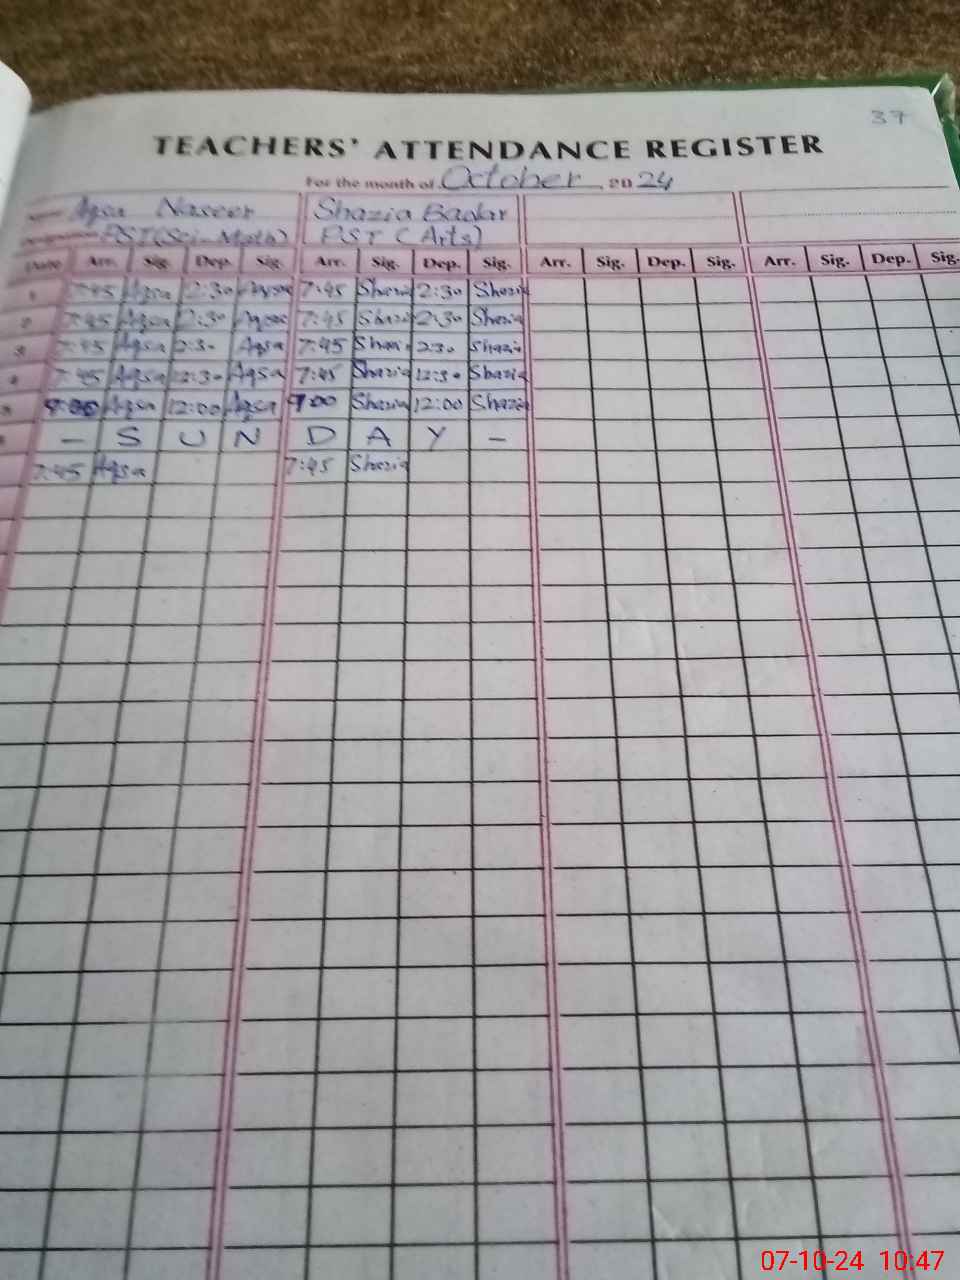 37
TEACHERS' ATTENDANCE REGISTER
For the month of October, 2024
Name Aqsa Naseer Shazia Badar
PST (Sci-Math) PST (Arts)
Date Arr. Sig. Dep. Sig. Arr. Sig. Dep. Sig. Arr. Sig. Dep. Sig. Arr. Sig. Dep. Sig.
1 7:45 Aqsa 2:30 Aqsa 7:45 Shazia 2:30 Shazia
2 7:45 Aqsa 2:30 Aqsa 7:45 Shazia 2:30 Shazia
3 7:45 Aqsa 2:30 Aqsa 7:45 Shazia 230 Shazia
4 7:45 Aqsa 12:30 Aqsa 7:45 Shazia 12:30 Shazia
5 9:00 Aqsa 12:00 Aqsa 9:00 Shazia 12:00 Shazia
- S U N D A Y -
7:45 Aqsa 7:45 Shazia
07-10-24 10:47